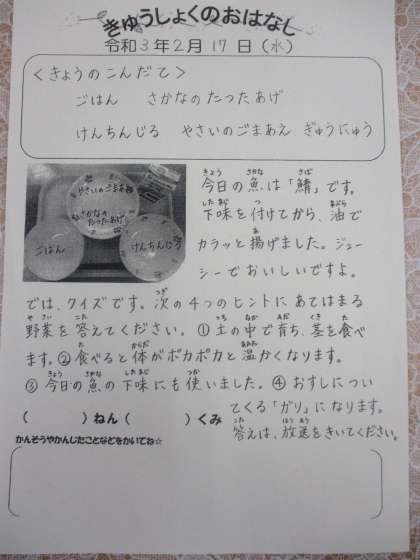 きゅうしょくのおはなし
令和3年2月17日(水)
<きょうのこんだて>
ごはん さかなのたつたあげ
けんちんじる やさいのごまあえ ぎゅうにゅう
やさいのごまあえ
さかなの
たつたあげ
ごはん
けんちんじる
今日の魚は「鯖」です。
下味を付けてから、油で
カラッと揚げました。ジュー
シーでおいしいですよ。
では、クイズです。次の4つのヒントにあてはまる
野菜を答えてください。①土の中で育ち、茎を食べ
ます。②食べると体がポカポカと温かくなります。
③今日の魚の下味にも使いました。④おすしについ
てくる「ガリ」になります。
( )ねん( )くみ
答えは、放送をきいてください。
かんそうやかんじたことなどをかいてね☆